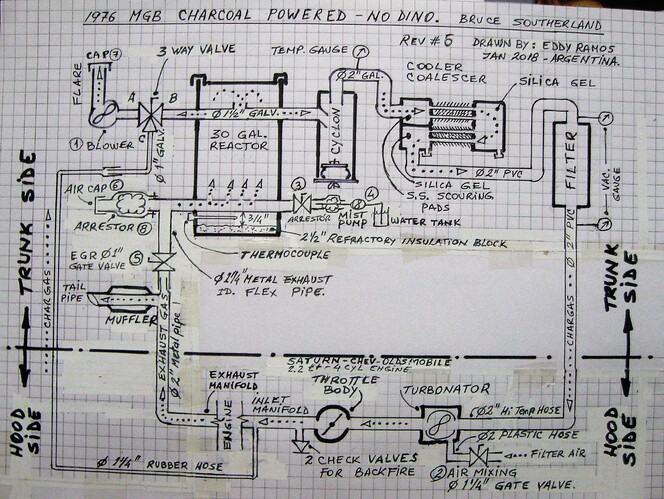 1976 MGB CHARCOAL POWERED - NO DINO. BRUCE SOUTHERLAND
REV # 6 DRAWN BY: EDDY RAMOS
JAN 2018 - ARGENTINA.
CAP ⑦
3 WAY VALVE
TEMP. GAUGE
FLARE
A
B
C
① BLOWER
Ø 1" GALV.
Ø 1½" GALV.
30 GAL.
REACTOR
CYCLON
Ø 2" GAL.
COOLER
COALESCER
SILICA GEL
Ø 2" PVC
SILICA GEL
S.S. SCOURING
PADS
FILTER
VAC.
GAUGE
Ø 2" PVC
TRUNK SIDE
AIR CAP ⑥
ARRESTOR ⑧
③
ARRESTOR
④
MIST
PUMP
WATER TANK
3/4"
2½" REFRACTORY INSULATION BLOCK
THERMOCOUPLE
EGR Ø1"
GATE VALVE
⑤
Ø 2¼" METAL EXHAUST
ID. FLEX PIPE.
TAIL
PIPE
MUFFLER
EXHAUST GAS
Ø 2" Metal pipe
CHARGAS
CHARGAS
TRUNK
SIDE
SATURN-CHEV-OLDSMOBILE
2.2 Ltr 4 CYL ENGINE
HOOD
SIDE
EXHAUST
MANIFOLD
ENGINE
INLET
MANIFOLD
THROTTLE
BODY
TURBONATOR
Ø2" Hi Temp HOSE
Ø2 PLASTIC HOSE
FILTER AIR
2 CHECK VALVES
FOR BACKFIRE
② AIR MIXING
Ø 1¼" GATE VALVE.
Ø 1¼" RUBBER HOSE
HOOD
SIDE